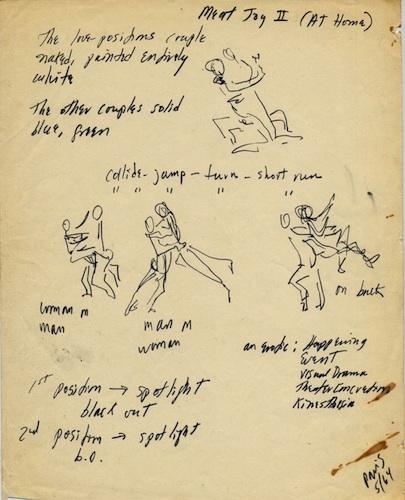 Meat Joy II (At Home)
The love-positions couple
naked, painted entirely
white
The other couples solid
blue, green
collide - jump - turn - short run
" " " " "
woman on
man
man on
woman
on back
an erotic: Happening
Event
Visual Drama
Theater Concretion
Kinesthesia
1st position → spotlight
black out
2nd position → spotlight
b.o.
Paris
5/64